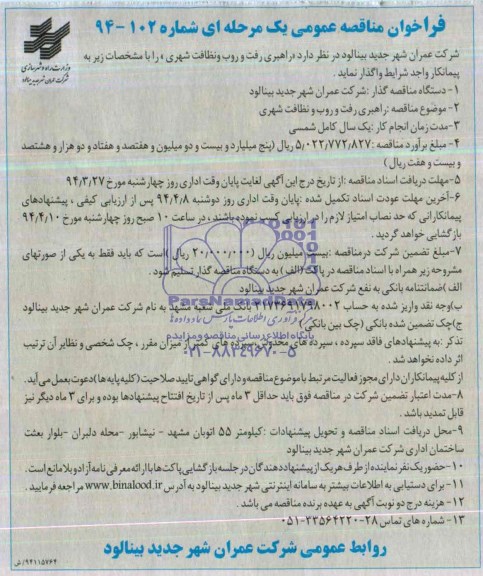 فراخوان مناقصه عمومی یک مرحله ای شماره ۱۰۲-۹۴
وزارت راه و شهرسازی
شرکت عمران شهر جدید بینالود
شرکت عمران شهر جدید بینالود در نظر دارد «راهبری رفت و روب ونظافت شهری» را با مشخصات زیر به
پیمانکار واجد شرایط واگذار نماید.
۱- دستگاه مناقصه گذار: شرکت عمران شهر جدید بینالود
۲- موضوع مناقصه: راهبری رفت و روب و نظافت شهری
۳-مدت زمان انجام کار: یک سال کامل شمسی
۴- مبلغ برآورد مناقصه: ۵,۰۲۲,۷۷۲,۸۲۷ ریال (پنج میلیارد و بیست و دو میلیون و هفتصد و هفتاد و دو هزار و هشتصد
و بیست و هفت ریال)
۵-مهلت دریافت اسناد مناقصه: از تاریخ درج این آگهی لغایت پایان وقت اداری روز چهارشنبه مورخ ۹۴/۳/۲۷
۶-آخرین مهلت عودت اسناد تکمیل شده: پایان وقت اداری روز دوشنبه ۹۴/۴/۸ پس از ارزیابی کیفی، پیشنهادهای
پیمانکارانی که حد نصاب امتیاز لازم را در ارزیابی کسب نموده باشند، در ساعت ۱۰ صبح روز چهارشنبه مورخ ۹۴/۴/۱۰
بازگشایی خواهد گردید.
۷-مبلغ تضمین شرکت درمناقصه: بیست میلیون ریال (۲۰,۰۰۰,۰۰۰ ریال) است که باید فقط به یکی از صورتهای
مشروحه زیر همراه با اسناد مناقصه در پاکت (الف) به دستگاه مناقصه گذار تسلیم شود.
الف) ضمانتنامه بانکی به نفع شرکت عمران شهر جدید بینالود
ب)وجه نقد واریز شده به حساب بانک ملی شعبه مشهد به نام شرکت عمران شهر جدید بینالود
ج)چک تضمین شده بانکی (چک بین بانکی)
تذکر: به پیشنهادهای فاقد سپرده، سپرده های مخدوش، سپرده های کمتر از میزان مقرر، چک شخصی و نظایر آن ترتیب
اثر داده نخواهد شد.
از کلیه پیمانکاران دارای مجوز فعالیت مرتبط با موضوع مناقصه و دارای گواهی تایید صلاحیت (کلیه پایه ها) دعوت بعمل می آید.
۸-مدت اعتبار تضمین شرکت در مناقصه فوق باید حداقل ۳ ماه پس از تاریخ افتتاح پیشنهادها بوده و برای ۳ ماه دیگر نیز
قابل تمدید باشد.
۹-محل دریافت اسناد مناقصه و تحویل پیشنهادات: کیلومتر ۵۵ اتوبان مشهد - نیشابور -محله دلبران -بلوار بعثت
ساختمان اداری شرکت عمران شهر جدید بینالود
۱۰-حضور یک نفر نماینده از طرف هریک از پیشنهاددهندگان در جلسه بازگشایی پاکت ها با ارائه معرفی نامه آزاد و بلامانع است.
۱۱- برای دستیابی به اطلاعات بیشتر به سامانه اینترنتی شهر جدید بینالود به آدرس www.binalood.ir مراجعه فرمایید.
۱۲- هزینه درج دو نوبت آگهی به عهده برنده مناقصه می باشد.
۱۳- شماره های تماس ۲۸-۳۳۵۶۴۲۲۰-۰۵۱
روابط عمومی شرکت عمران شهر جدید بینالود
۹۴۱۱۵۷۶۴/ش
ParsNamadData
پایگاه اطلاع رسانی مناقصه و مزایده
۰۲۱-۸۸۳۴۹۶۷۰-۵